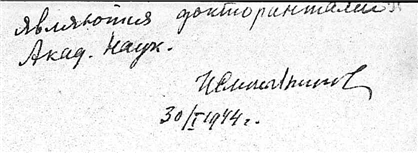 являются докторантами
Акад. Наук.
30/I 1944 г.